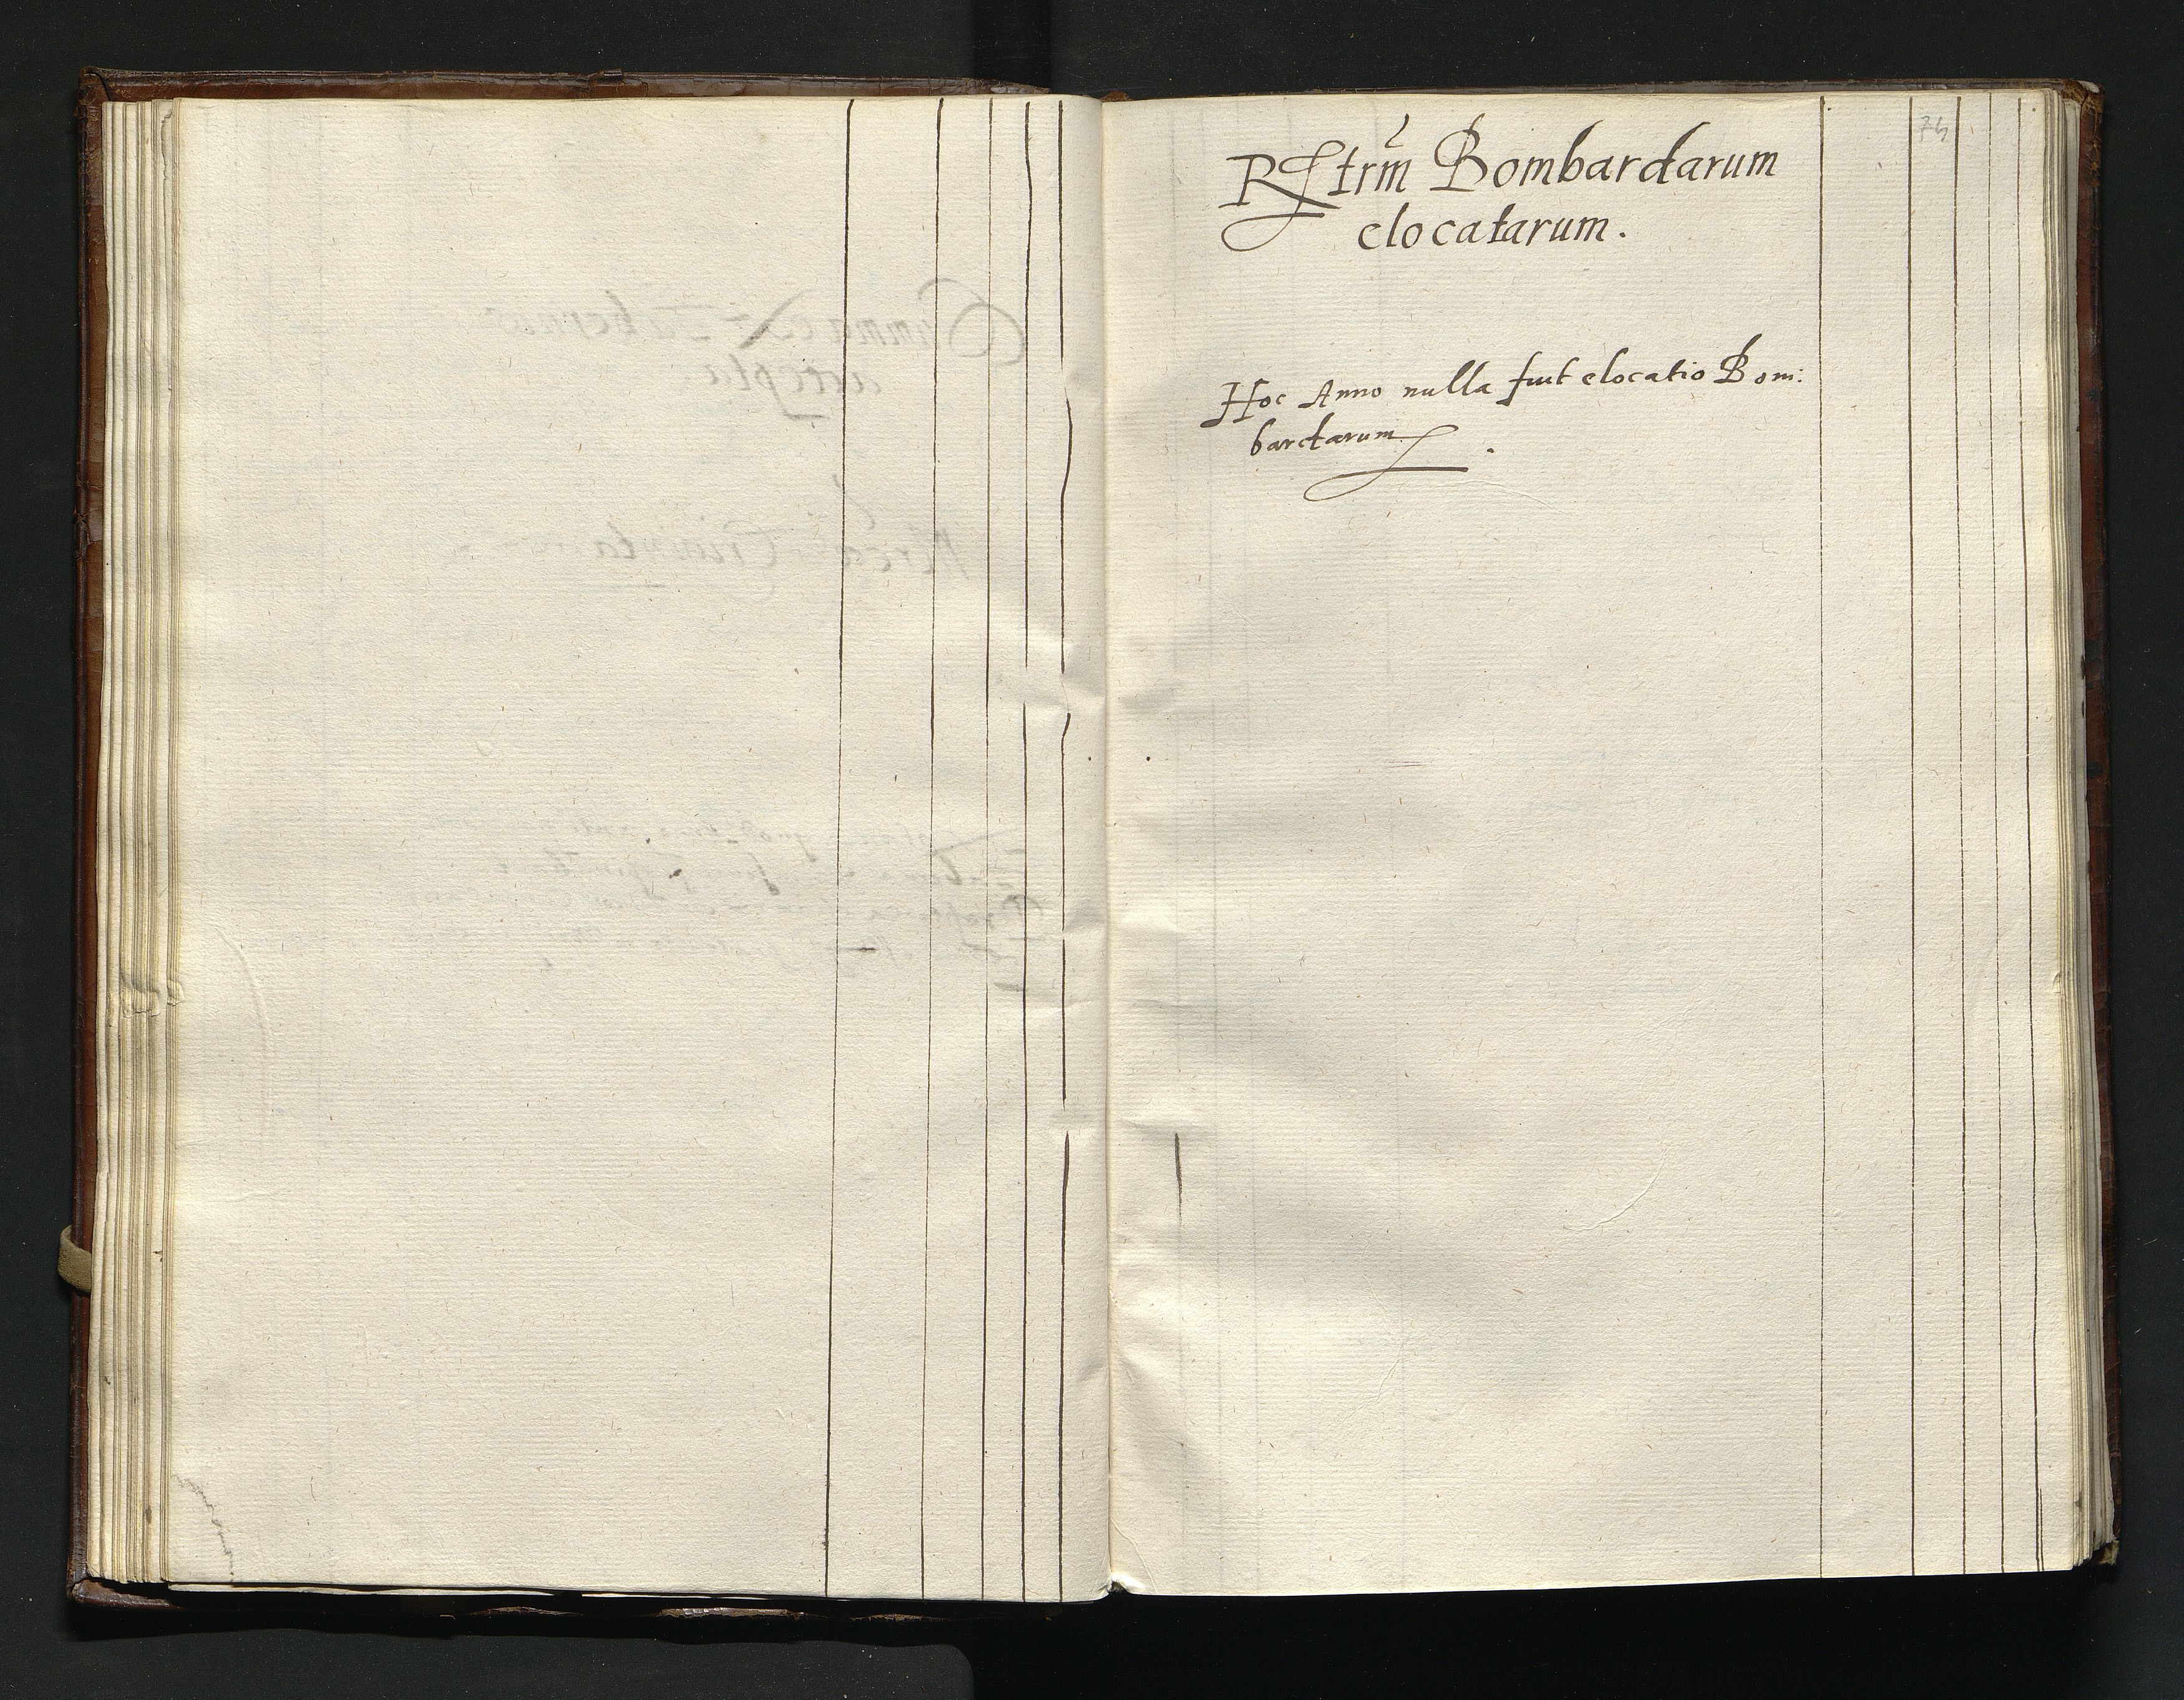 74
Rstrm̄ Bombardarum
elocatarum.
Hoc Anno nulla fuit elocatio Bom:
bardarum.